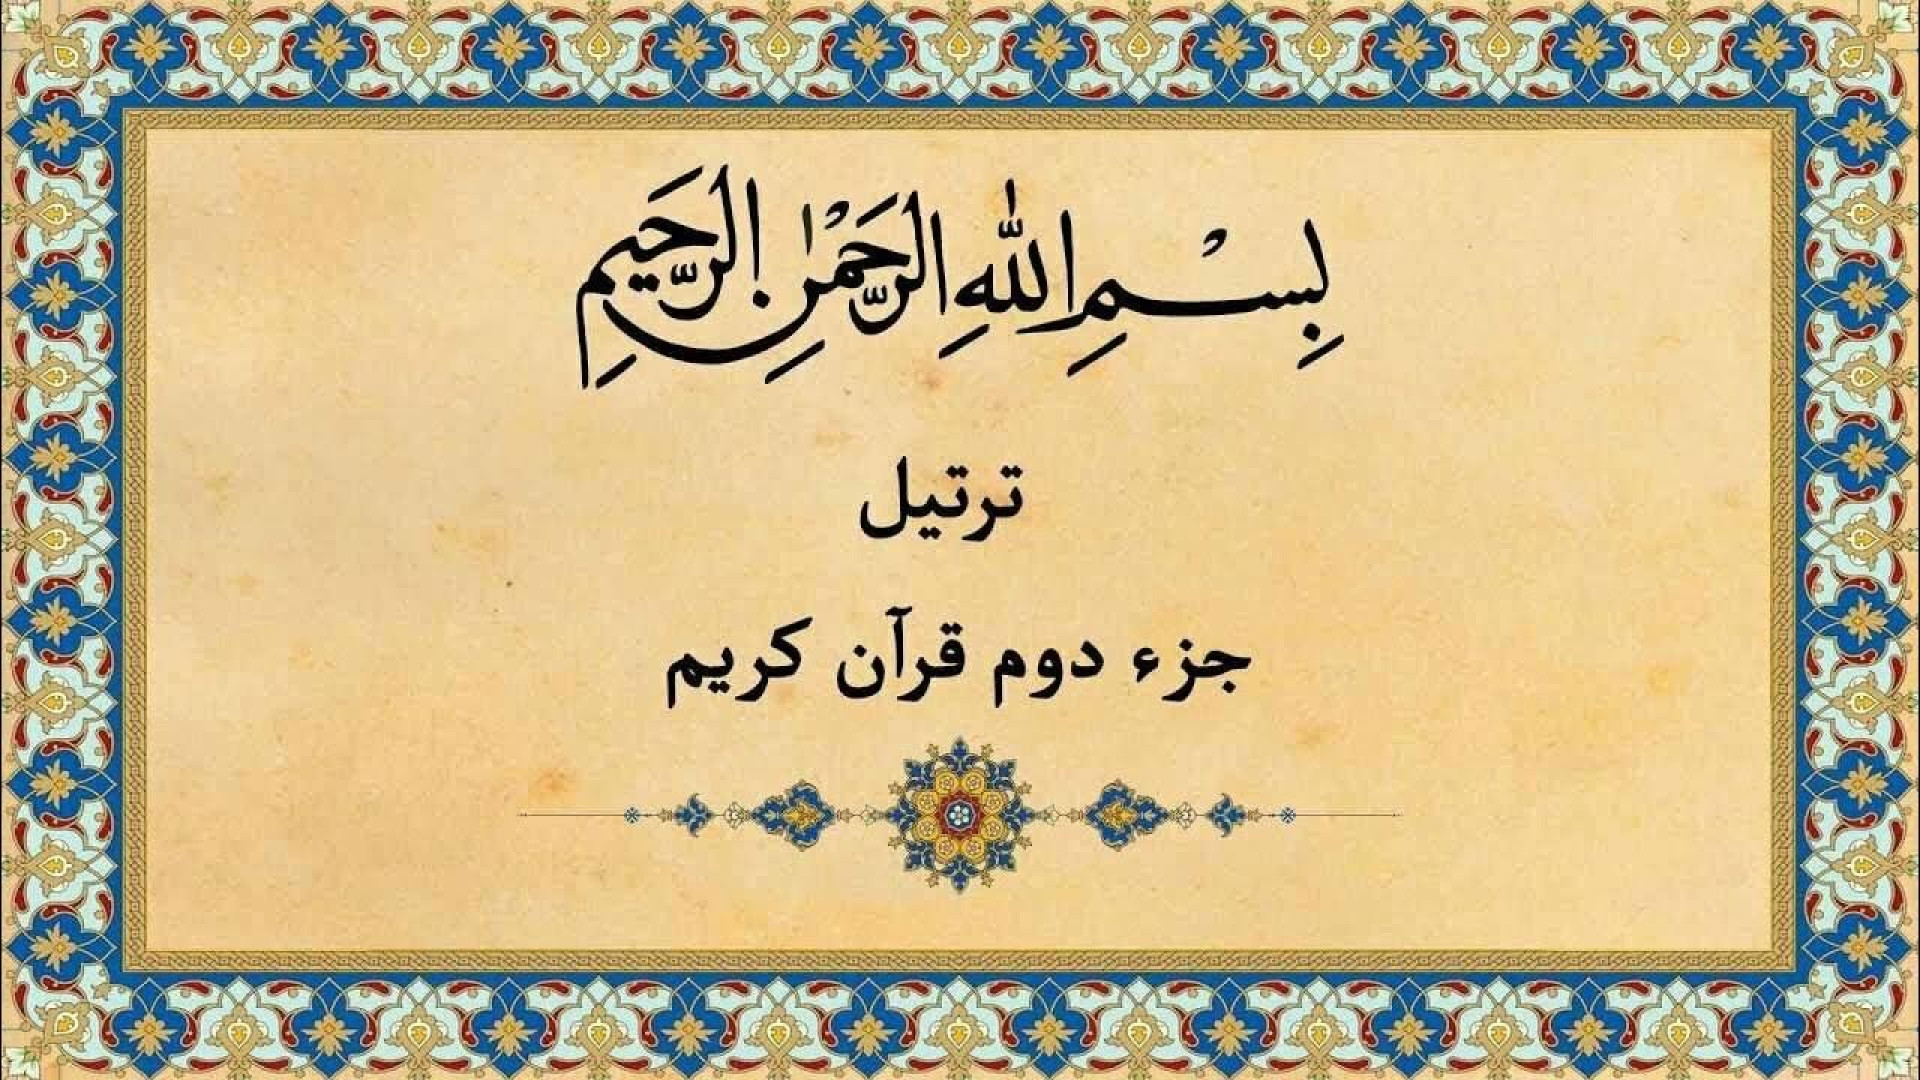 بِسْمِ اللّٰهِ الرَّحْمٰنِ الرَّحِيمِ
ترتیل
جزء دوم قرآن کریم